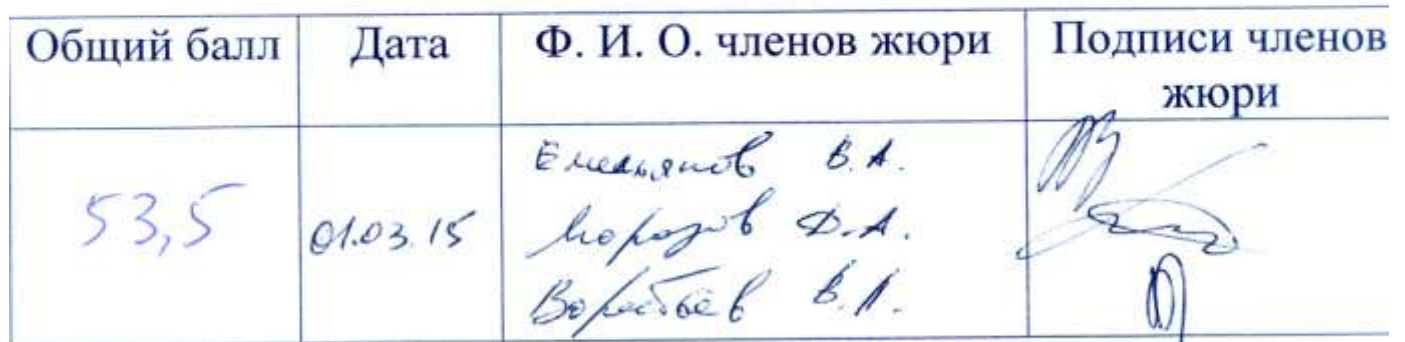 Общий балл
Дата
Ф. И. О. членов жюри
Подписи членов
жюри
53,5
01.03.15
Емельянов В.А.
Морозов Д.А.
Воробьев В.А.